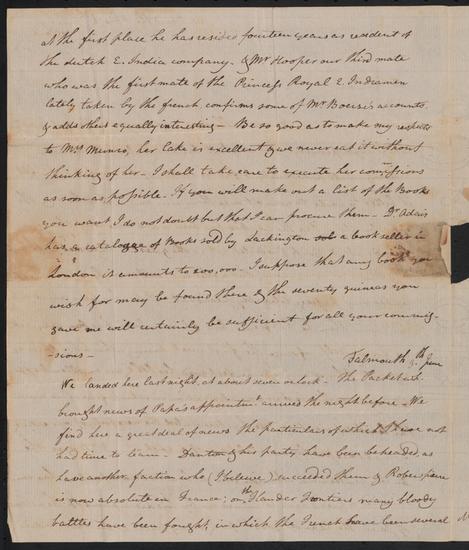 at the first place he has resided fourteen years as resident of
the dutch E. India company. & Mr Hooper our third mate
who was the first mate of the Princess Royal E. Indiamen
lately taken by the french confirms some of Mr Boersis accounts
& adds others equally interesting – Be so good as to make my respects
to Mrs Munro, her Cake is excellent & we never eat it without
thinking of her – I shall take care to execute her comissions
as soon as possible. If you will make out a List of the Books
you want I do not doubt but that I can procure them – Dr Adair
has a catalogue of Books sold by Lackington a bookseller in
London it amounts to 200,000. I suppose that any book you
wish for may be found there & the seventy guineas you
gave me will certainly be sufficient for all your commis-
-sions –
Falmouth 9th June
We landed here last night, at about seven oclock – The Packet wh.
brought news of Papa's appointmt arrived the night before – We
find here a great deal of news the particulars of which I have not
had time to learn – Danton & his party, have been beheaded, as
have another faction who (I believe) succeeded them & Roberspiere
is now absolute in France; on the Flander Frontiers many bloody
battles have been fought, in which the French have been several